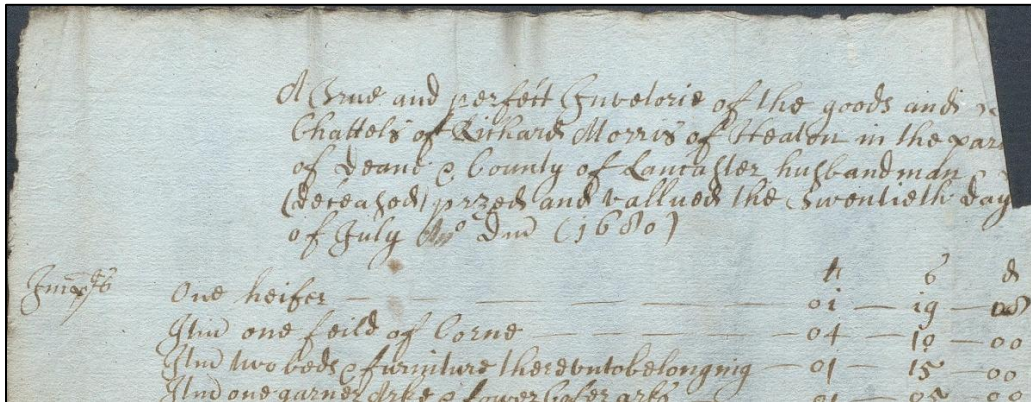 A True and perfect Inuetorie of the goods and
Chattels of Richard Morris of Heaton in the par
of Deane & County of Lancaster husbandman
(deceased) przed and vallued the Twentieth day
of July Ano Dm (1680)
li s d
Imprs One heifer — — — — — 01 — 19 — 08
Itm one feild of Corne — — — 04 — 10 — 00
Itm two beds & furniture therevntobelonging — 01 — 15 — 00
Itm one garner Arke & arks — 01 — 05 — 00